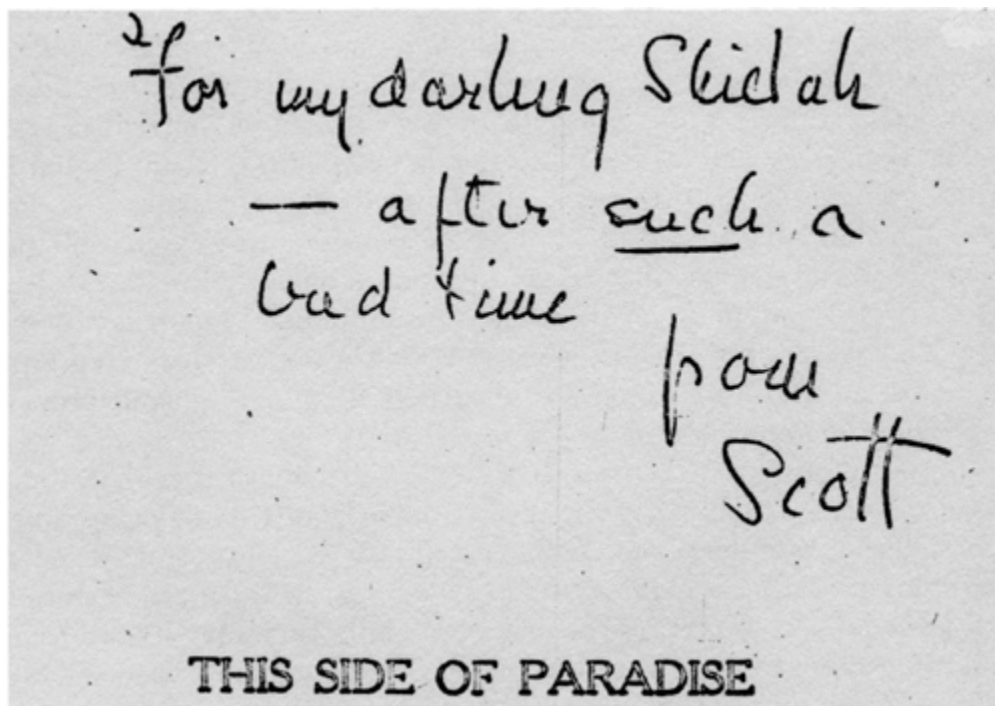 For my darling Shielah
— after such a
bad time
from
Scott
THIS SIDE OF PARADISE